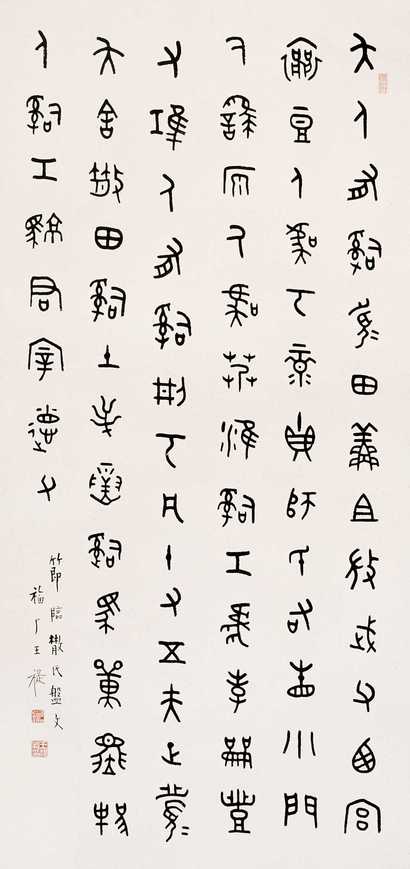 夨人有嗣眉田鮮且微武父西宮
襄豆人虞丂彔貞師氏右眚小門
人繇原人虞艿淮嗣工虎孛開豐
父琟人有嗣刑丂凡十又五夫正眉
夨舍散田嗣土屰寅嗣馬單邦
人嗣工駷君宰德父
節臨散氏盤文
福厂王禔